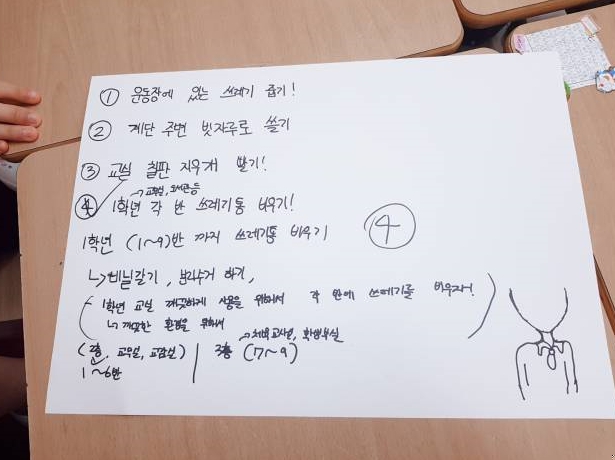 ① 운동장에 있는 쓰레기 줍기!
② 계단 주변 빗자루로 쓸기
③ 교실 칠판 지우개 털기!
→ 교무실, 도서관 등
④ 1학년 각 반 쓰레기통 비우기!
1학년 (1~9)반 까지 쓰레기통 비우기
④
↳ 비닐갈기, 분리수거 하기,
1학년 교실 깨끗하게 사용을 위해서 각 반에 쓰레기를 비우자!
↳ 깨끗한 환경을 위해서
→ 체육교사실, 학생부실
(2층, 교무실, 교장실) | 3층 (7~9)
1~6반